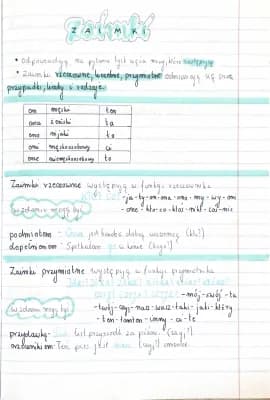 ZAIMKI
• odpowiadają na pytania tych części mowy, które zastępują
• Zaimki rzeczowne, liczebne, przymiotne odmieniają się przez
przypadki, liczby i rodzaje.
on męski ten
ona żeński ta
ono nijaki to
oni męskoosobowy ci
one niemęskoosobowy te
Zaimki rzeczowne występują w funkcji rzeczownika
-ja-ty-on-ona-ono-my-wy-oni
w zdaniu mogą być
-one-kto-co-ktoś-nikt-coś-nic
podmiotem - Ona jest bardzo dobrą uczennicą (kto?)
dopełnieniem: Spotkałam go w kinie (kogo?)
Zaimki przymiotne występują w funkcji przymiotnika
-mój-swój-ta
w zdaniu mogą być
-twój-czyj-nasz-wasz-taki-jaki-który
-ten-tamten-inny-ci-te
przydawką-
orzecznikiem: Ten pies jest